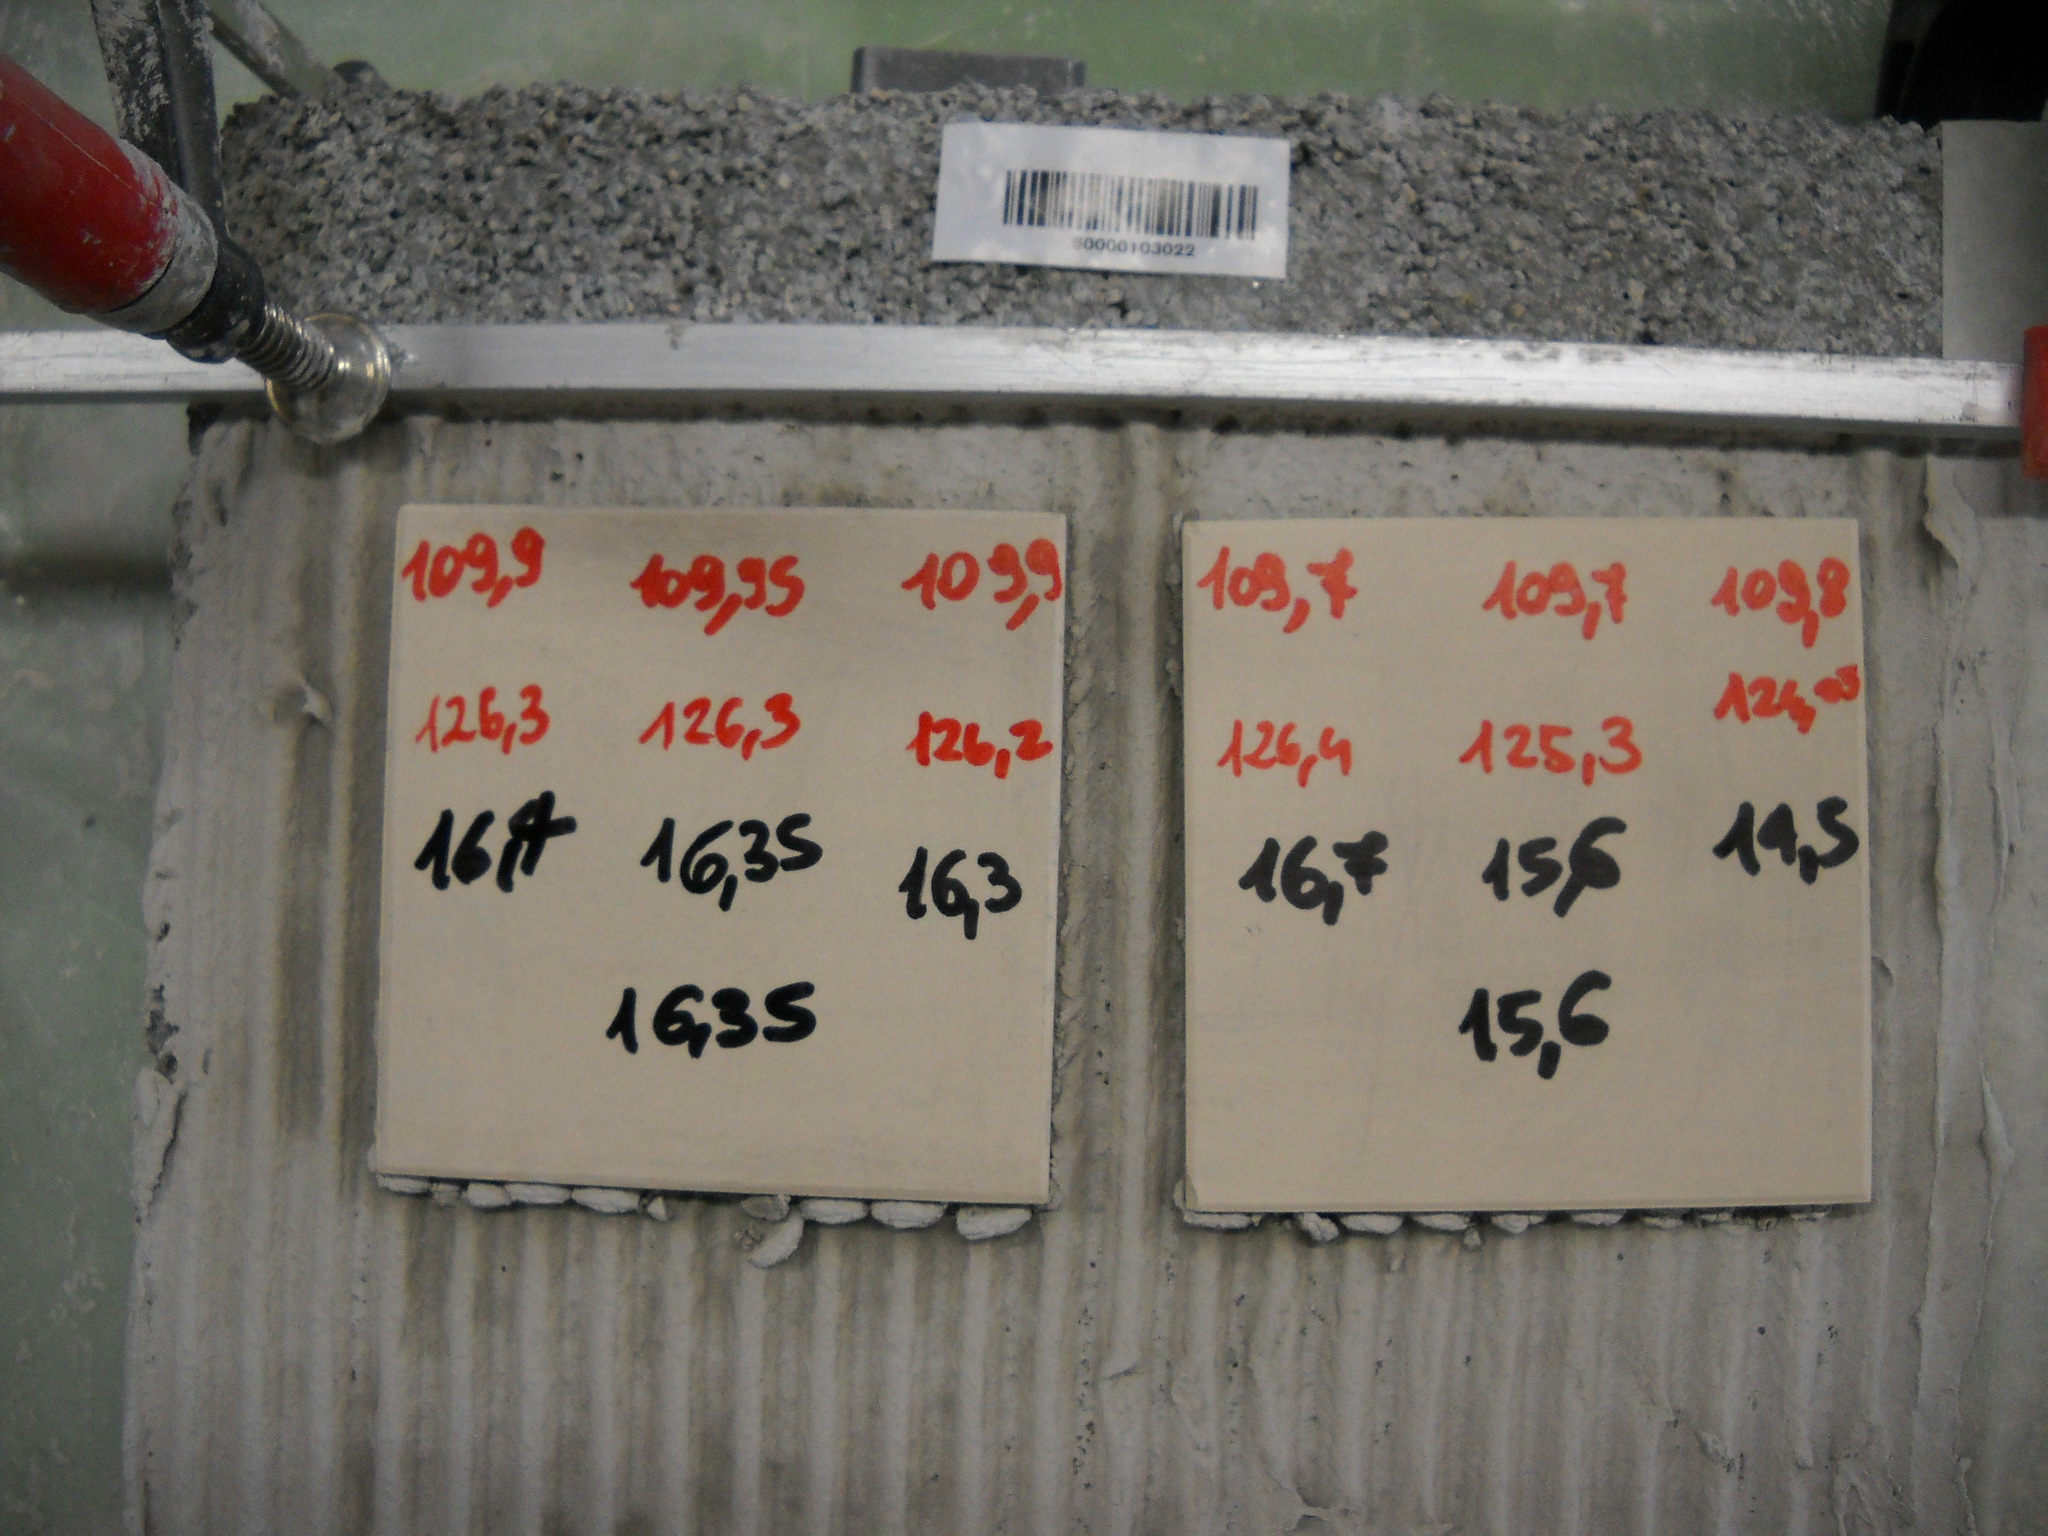 S0000103022
109,9 109,95 109,9
126,3 126,3 126,2
16,4 16,35 16,3
16,35
109,7 109,7 109,8
126,4 125,3
16,7 15,6 14,5
15,6